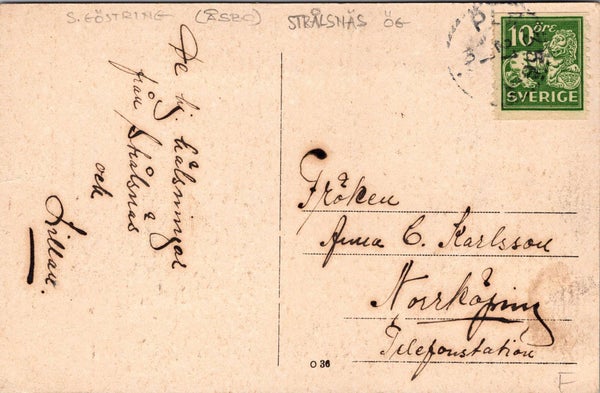 S. GÖSTRING (ÅSBO) STRÅLSNÄS ÖG
10 ÖRE
SVERIGE
De hj. hälsningar
från Strålsnäs
och
Lillan.
Fröken
Anna C. Karlsson
Norrköping
Telefonstation
O 36
F